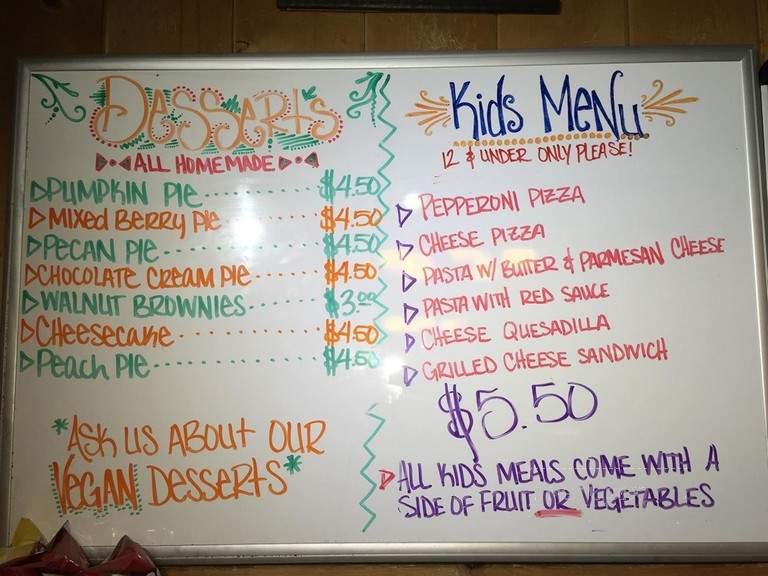 Desserts
ALL HOMEMADE
PUMPKIN PIE $4.50
MIXED BERRY PIE $4.50
PECAN PIE $4.50
CHOCOLATE CREAM PIE $4.50
WALNUT BROWNIES $3.00
CHEESECAKE $4.50
PEACH PIE $4.50
*ASK US ABOUT OUR
VEGAN DESSERTS*
Kids Menu
12 & UNDER ONLY PLEASE!
PEPPERONI PIZZA
CHEESE PIZZA
PASTA W/ BUTTER & PARMESAN CHEESE
PASTA WITH RED SAUCE
CHEESE QUESADILLA
GRILLED CHEESE SANDWICH
$5.50
ALL KIDS MEALS COME WITH A
SIDE OF FRUIT OR VEGETABLES